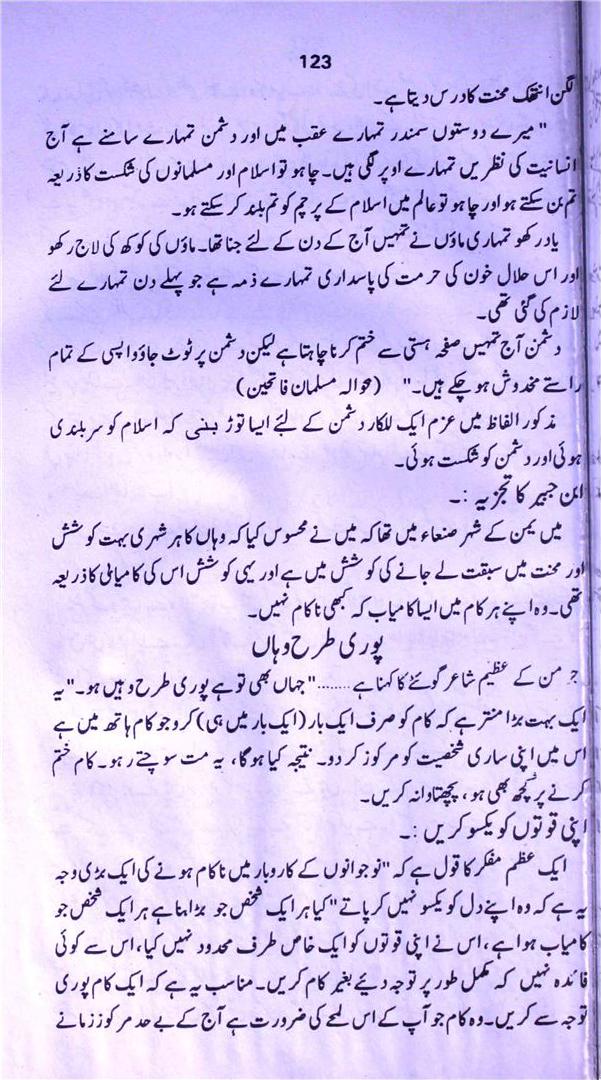 123
لگن انتھک محنت کا درس دیتا ہے۔
" میرے دوستوں سمندر تمہارے عقب میں اور دشمن تمہارے سامنے ہے آج
انسانیت کی نظریں تمہارے اوپر لگی ہیں۔ چاہو تو اسلام اور مسلمانوں کی شکست کا ذریعہ
تم بن سکتے ہو اور چاہو تو عالم میں اسلام کے پرچم کو تم بلند کر سکتے ہو۔
یاد رکھو تمہاری ماؤں نے تمہیں آج کے دن کے لئے جنا تھا۔ ماؤں کی کوکھ کی لاج رکھو
اور اس حلال خون کی حرمت کی پاسداری تمہارے ذمہ ہے جو پہلے دن تمہارے لئے
لازم کی گئی تھی۔
دشمن آج تمہیں صفحہ ہستی سے ختم کرنا چاہتا ہے لیکن دشمن پر ٹوٹ جاؤ واپسی کے تمام
راستے مخدوش ہو چکے ہیں۔" (حوالہ مسلمان فاتحین)
مذکور الفاظ میں عزم ایک للکار دشمن کے لئے ایسا توڑ بنی کہ اسلام کو سربلندی
ہوئی اور دشمن کو شکست ہوئی۔
ابن جبیر کا تجزیہ :۔
میں یمن کے شہر صنعاء میں تھا کہ میں نے محسوس کیا کہ وہاں کا ہر شہری بہت کوشش
اور محنت میں سبقت لے جانے کی کوشش میں ہے اور یہی کوشش اس کی کامیابی کا ذریعہ
تھی۔ وہ اپنے ہر کام میں ایسا کامیاب کہ کبھی ناکام نہیں۔
پوری طرح وہاں
جرمن کے عظیم شاعر گوئٹے کا کہنا ہے ........" جہاں بھی تو ہے پوری طرح وہیں ہو۔" یہ
ایک بہت بڑا منتر ہے کہ کام کو صرف ایک بار (ایک بار میں ہی) کرو جو کام ہاتھ میں ہے
اس میں اپنی ساری شخصیت کو مرکوز کر دو۔ نتیجہ کیا ہوگا، یہ مت سوچتے رہو۔ کام ختم
کرنے پر کچھ بھی ہو، پچھتاوا نہ کریں۔
اپنی قوتوں کو یکسو کریں :۔
ایک عظیم مفکر کا قول ہے کہ "نوجوانوں کے کاروبار میں ناکام ہونے کی ایک بڑی وجہ
یہ ہے کہ وہ اپنے دل کو یکسو نہیں کر پاتے" کیا ہر ایک شخص جو بڑا بنا ہے ہر ایک شخص جو
کامیاب ہوا ہے، اس نے اپنی قوتوں کو ایک خاص طرف محدود نہیں کیا، اس سے کوئی
فائدہ نہیں کہ مکمل طور پر توجہ دیئے بغیر کام کریں۔ مناسب یہ ہے کہ ایک کام پوری
توجہ سے کریں۔ وہ کام جو آپ کے اس لمحے کی ضرورت ہے آج کے بے حد مرکوز زمانے